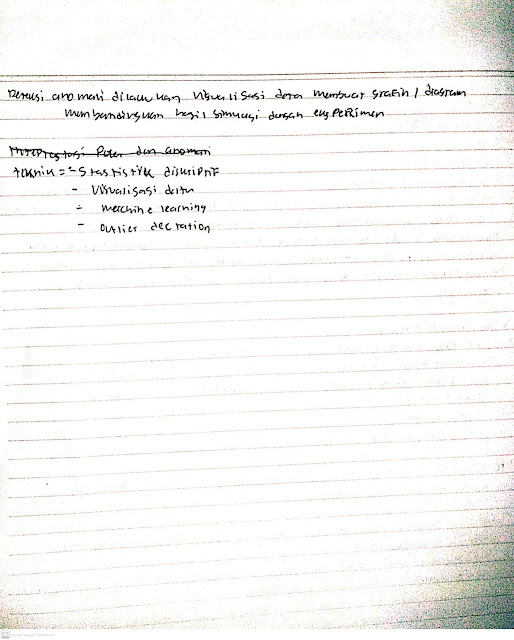 Deteksi anomali dilakukan visualisasi data membuat grafik / diagram
membandingkan hasil simulasi dengan eksperimen
Interprestasi Pola dan anomali
teknik = - Stastistik diskriptif
- Visualisasi data
- merchine learning
- outlier dectation